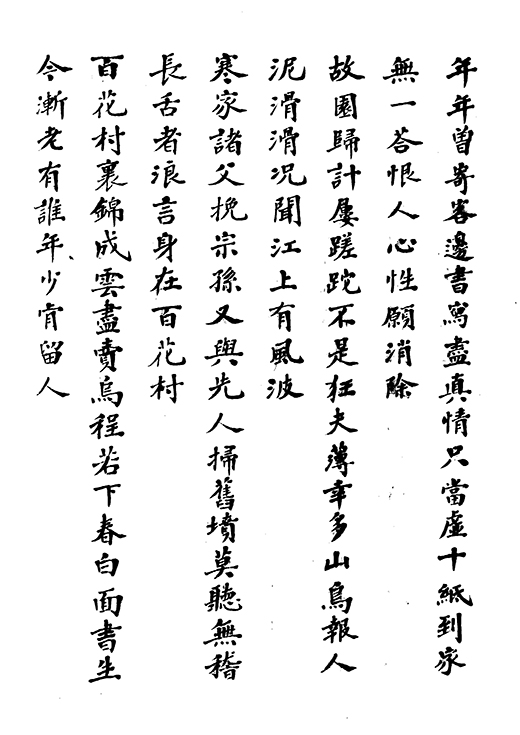 年年曽寄客邊書寫盡真情只當虛十紙到家
無一荅恨人心性願消除
故園歸計屢蹉跎不是狂夫薄幸多山鳥報人
泥滑滑况聞江上有風波
寒家諸父挽宗孫又與先人掃舊墳莫聽無稽
長舌者浪言身在百花村
百花村裏錦成雲盡賣烏程若下春白面書生
今漸老有誰年少肯留人